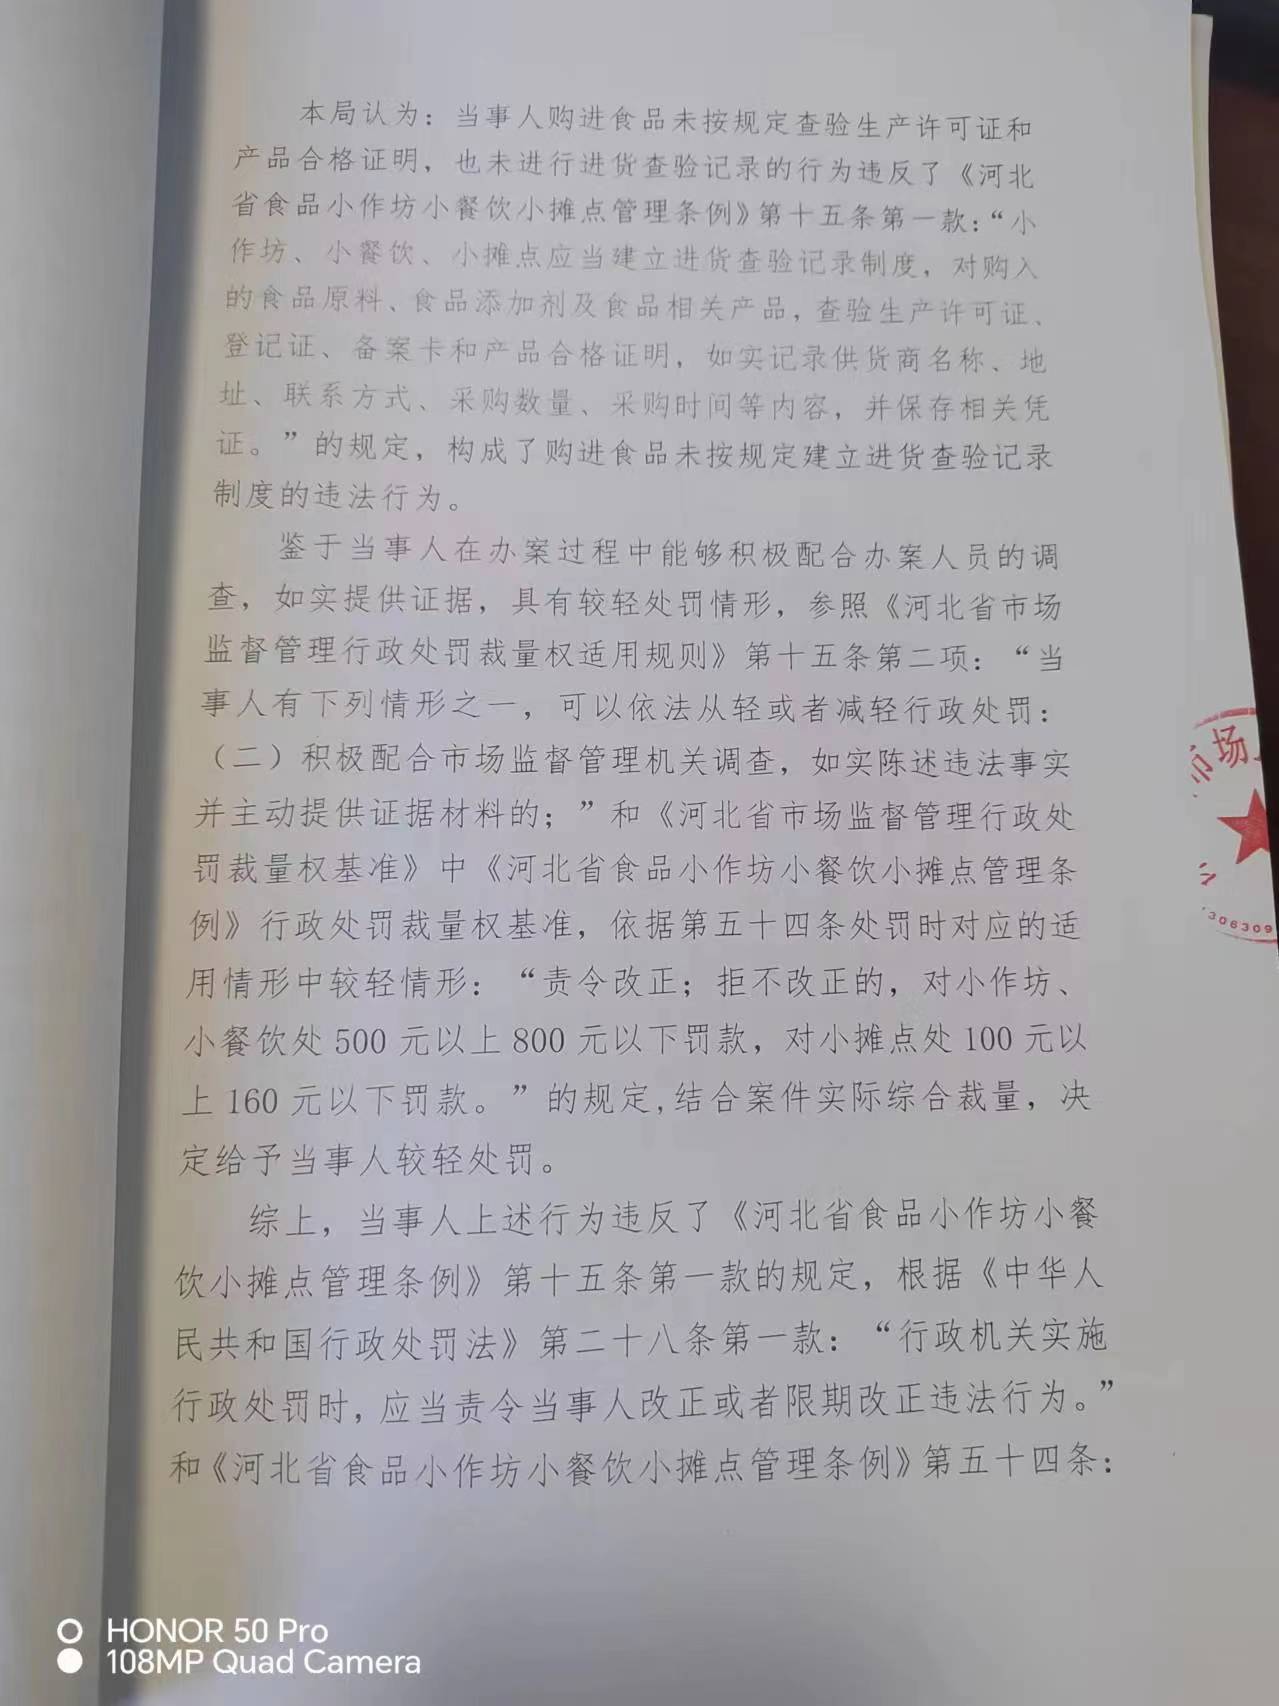 本局认为：当事人购进食品未按规定查验生产许可证和
产品合格证明，也未进行进货查验记录的行为违反了《河北
省食品小作坊小餐饮小摊点管理条例》第十五条第一款：“小
作坊、小餐饮、小摊点应当建立进货查验记录制度，对购入
的食品原料、食品添加剂及食品相关产品，查验生产许可证、
登记证、备案卡和产品合格证明，如实记录供货商名称、地
址、联系方式、采购数量、采购时间等内容，并保存相关凭
证。”的规定，构成了购进食品未按规定建立进货查验记录
制度的违法行为。
鉴于当事人在办案过程中能够积极配合办案人员的调
查，如实提供证据，具有较轻处罚情形，参照《河北省市场
监督管理行政处罚裁量权适用规则》第十五条第二项：“当
事人有下列情形之一，可以依法从轻或者减轻行政处罚：
（二）积极配合市场监督管理机关调查，如实陈述违法事实
并主动提供证据材料的；”和《河北省市场监督管理行政处
罚裁量权基准》中《河北省食品小作坊小餐饮小摊点管理条
例》行政处罚裁量权基准，依据第五十四条处罚时对应的适
用情形中较轻情形：“责令改正；拒不改正的，对小作坊、
小餐饮处 500 元以上 800 元以下罚款，对小摊点处 100 元以
上 160 元以下罚款。”的规定,结合案件实际综合裁量，决
定给予当事人较轻处罚。
综上，当事人上述行为违反了《河北省食品小作坊小餐
饮小摊点管理条例》第十五条第一款的规定，根据《中华人
民共和国行政处罚法》第二十八条第一款：“行政机关实施
行政处罚时，应当责令当事人改正或者限期改正违法行为。”
和《河北省食品小作坊小餐饮小摊点管理条例》第五十四条：
市场
306309
HONOR 50 Pro
108MP Quad Camera